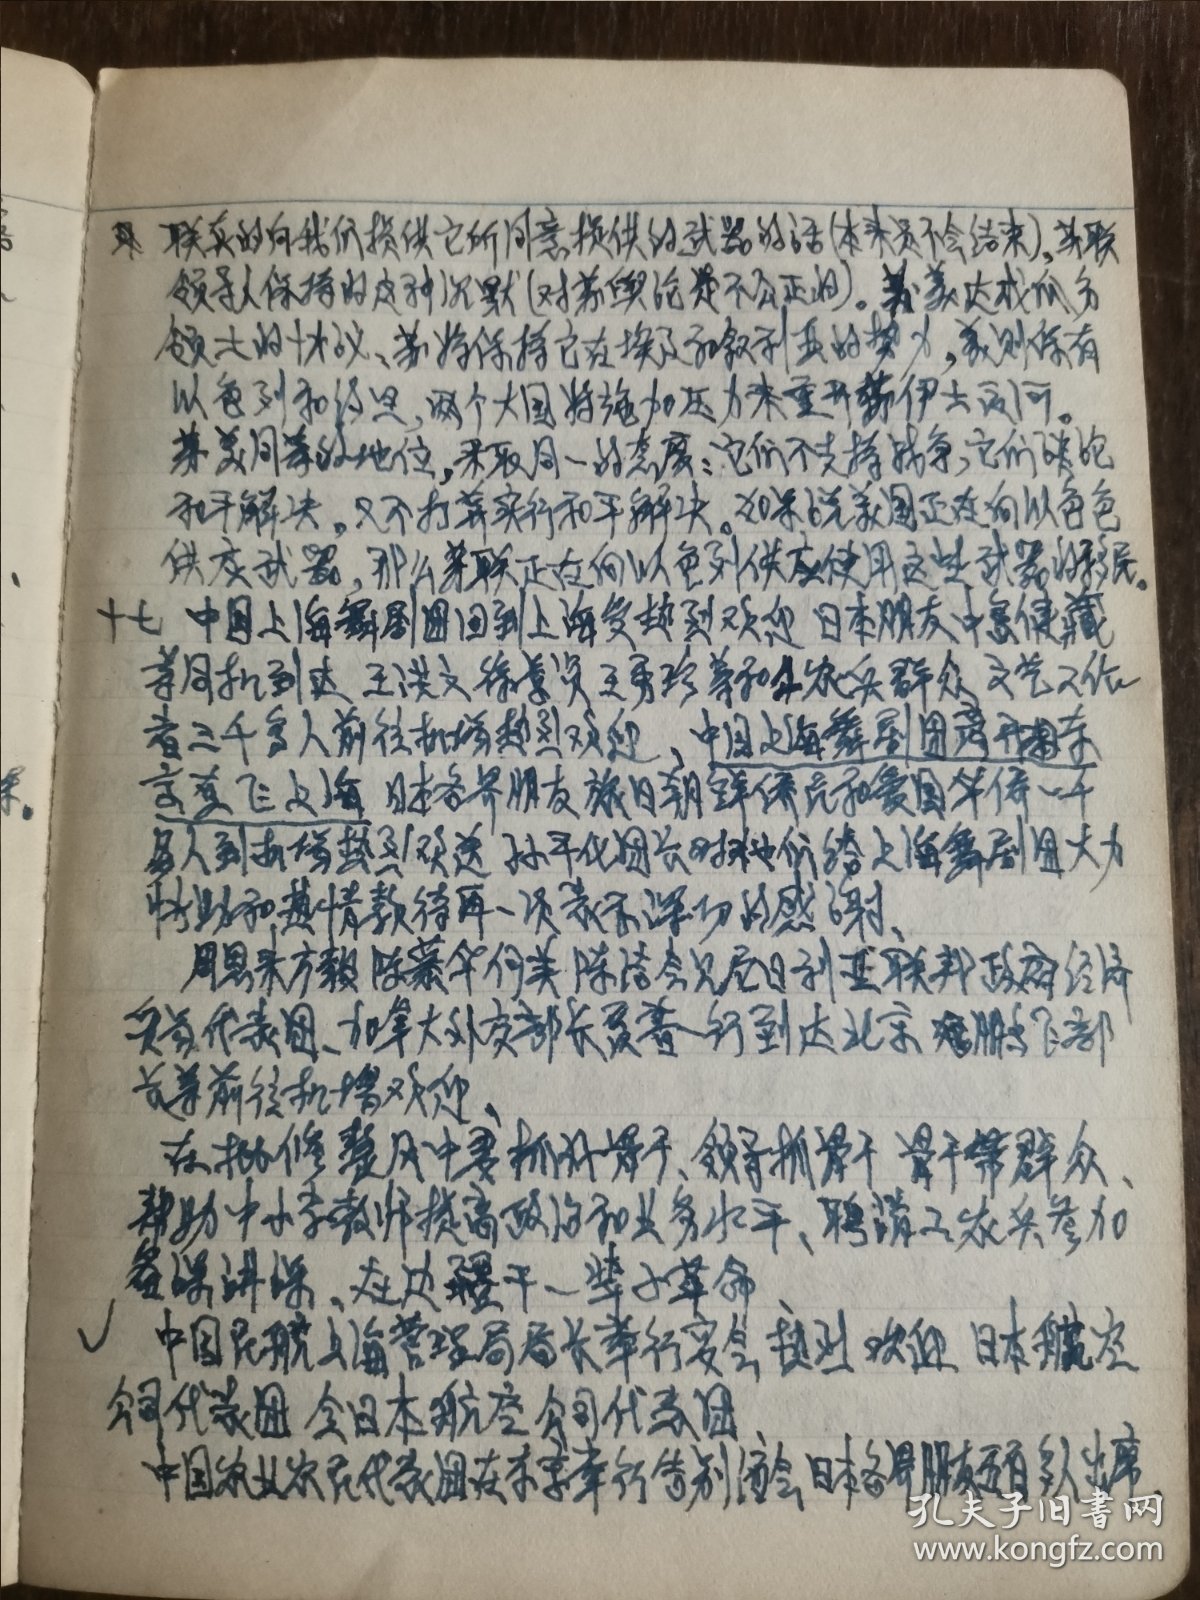 联真的向我们提供它所同意提供的武器的话(本来是不会结束)、苏联
领导人保持的这种沉默(对苏舆论是不公正的)。苏美达成瓜分
领土的协议、苏将保持它在埃及和叙利亚的势力,美则保有
以色列和约旦,两个大国将施加压力来重开苏伊士运河。
苏美同等的地位,采取同一的态度:它们不支持战争,它们谈论
和平解决。又不打算实行和平解决。如果说美国正在向以色色
供应武器,那么苏联正在向以色列供应使用这些武器的移民。
十七 中国上海舞剧团回到上海受热烈欢迎 日本朋友中岛健藏
等同机到达 王洪文徐景贤王秀珍等和工农兵群众 文艺工作
者三千多人前往机场热烈欢迎、中国上海舞剧团离开东
京直飞上海 日本各界朋友旅日朝鲜侨民和爱国华侨一千
多人到机场热烈欢送 孙平化团长对他们给上海舞剧团大力
协助和热情款待再一次表示深切的感谢、
周恩来方毅陈慕华何英陈洁会见尼日利亚联邦政府经济
贸易代表团、加拿大外交部长夏普一行到达北京 姬鹏飞部
长等前往机场欢迎、
在批修整风中要抓好骨干、领导抓骨干 骨干带群众、
帮助中小学教师提高政治和业务水平、聘请工农兵参加
备课讲课、在边疆干一辈子革命、
中国民航上海管理局局长举行宴会 热烈欢迎 日本航空
公司代表团 全日本航空公司代表团、
中国农业农民代表团在东京举行告别酒会 日本各界朋友五百多人出席、
孔夫子旧书网
www.kongfz.com